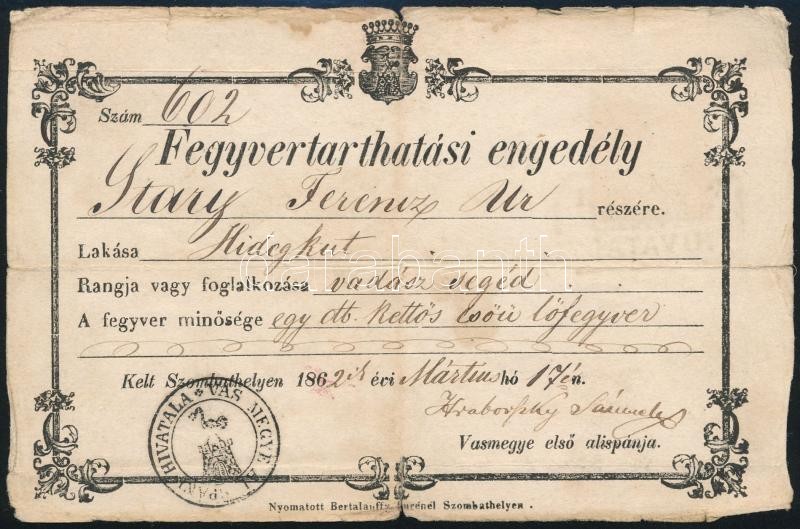 Szám 602
Fegyvertarthatási engedély
Stary Ferencz Ur részére.
Lakása Hidegkut
darabanth
Rangja vagy foglalkozása vadász segéd
A fegyver minősége egy db. kettős csöü lőfegyver
Kelt Szombathelyen 1862ik évi Mártius hó 17én.
Hrabovszky Sámuel
Vasmegye első alispánja.
VAS MEGYE ALISPÁNI HIVATALA
Nyomatott Bertalanffy Imrénél Szombathelyen.